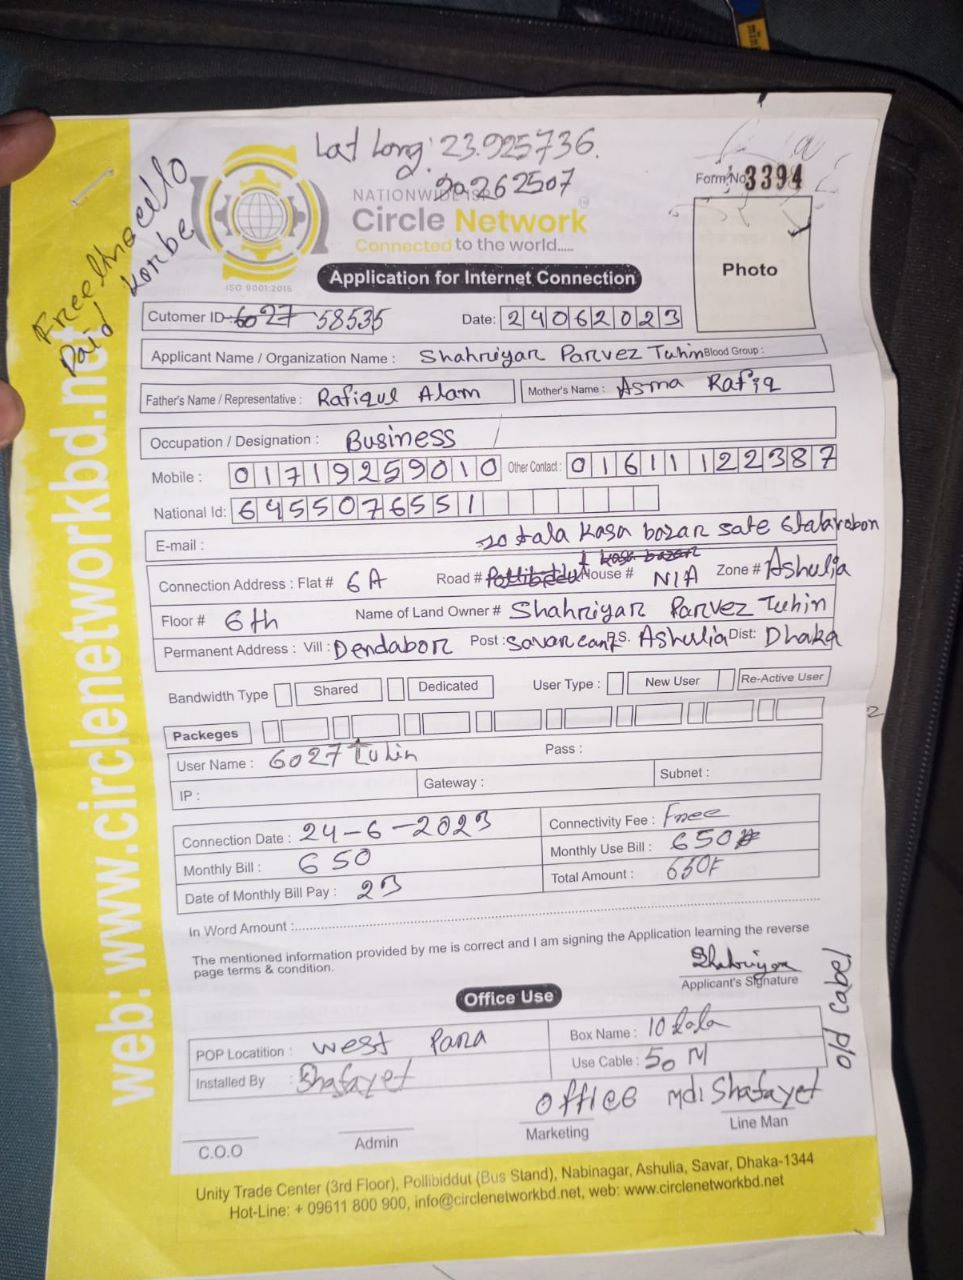 Lat Long: 23.925736.
90262507
Form No 3394
NATIONWIDE ISP
Circle Network
Connected to the world.....
ISO 9001:2015
Photo
Paid Korbe
Application for Internet Connection
Cutomer ID 6027 58535 Date: 24062023
Applicant Name / Organization Name : Shahriyar Parvez Tuhin Blood Group :
Father's Name / Representative : Rafiqul Alam Mother's Name : Asma Rafiq
Occupation / Designation : Business
Mobile : 01719259010 Other Contact : 01611122387
National Id: 6455076551
E-mail : 10 tala Kasa bazar sate
kasa bazar
Connection Address : Flat # 6A Road # House # N/A Zone # Ashulia
Floor # 6th Name of Land Owner # Shahriyar Parvez Tuhin
Permanent Address : Vill : Dendabor Post : Savar cant P.S. Ashulia Dist: Dhaka
Bandwidth Type Shared Dedicated User Type : New User Re-Active User
Packeges
User Name : 6027 Tuhin Pass :
IP : Gateway : Subnet :
Connection Date : 24-6-2023 Connectivity Fee : Free
Monthly Bill : 650 Monthly Use Bill : 650
Date of Monthly Bill Pay : 23 Total Amount : 650
In Word Amount :
The mentioned information provided by me is correct and I am signing the Application learning the reverse
page terms & condition.
Shahriyar
Applicant's Signature
Office Use
POP Locatition : West Para Box Name : 10 tala
Installed By : Shafayet Use Cable : 50 M
Cabel p/o
office Md: Shafayet
C.O.O Admin Marketing Line Man
Unity Trade Center (3rd Floor), Pollibiddut (Bus Stand), Nabinagar, Ashulia, Savar, Dhaka-1344
Hot-Line: + 09611 800 900, info@circlenetworkbd.net, web: www.circlenetworkbd.net
web: www.circlenetworkbd.net